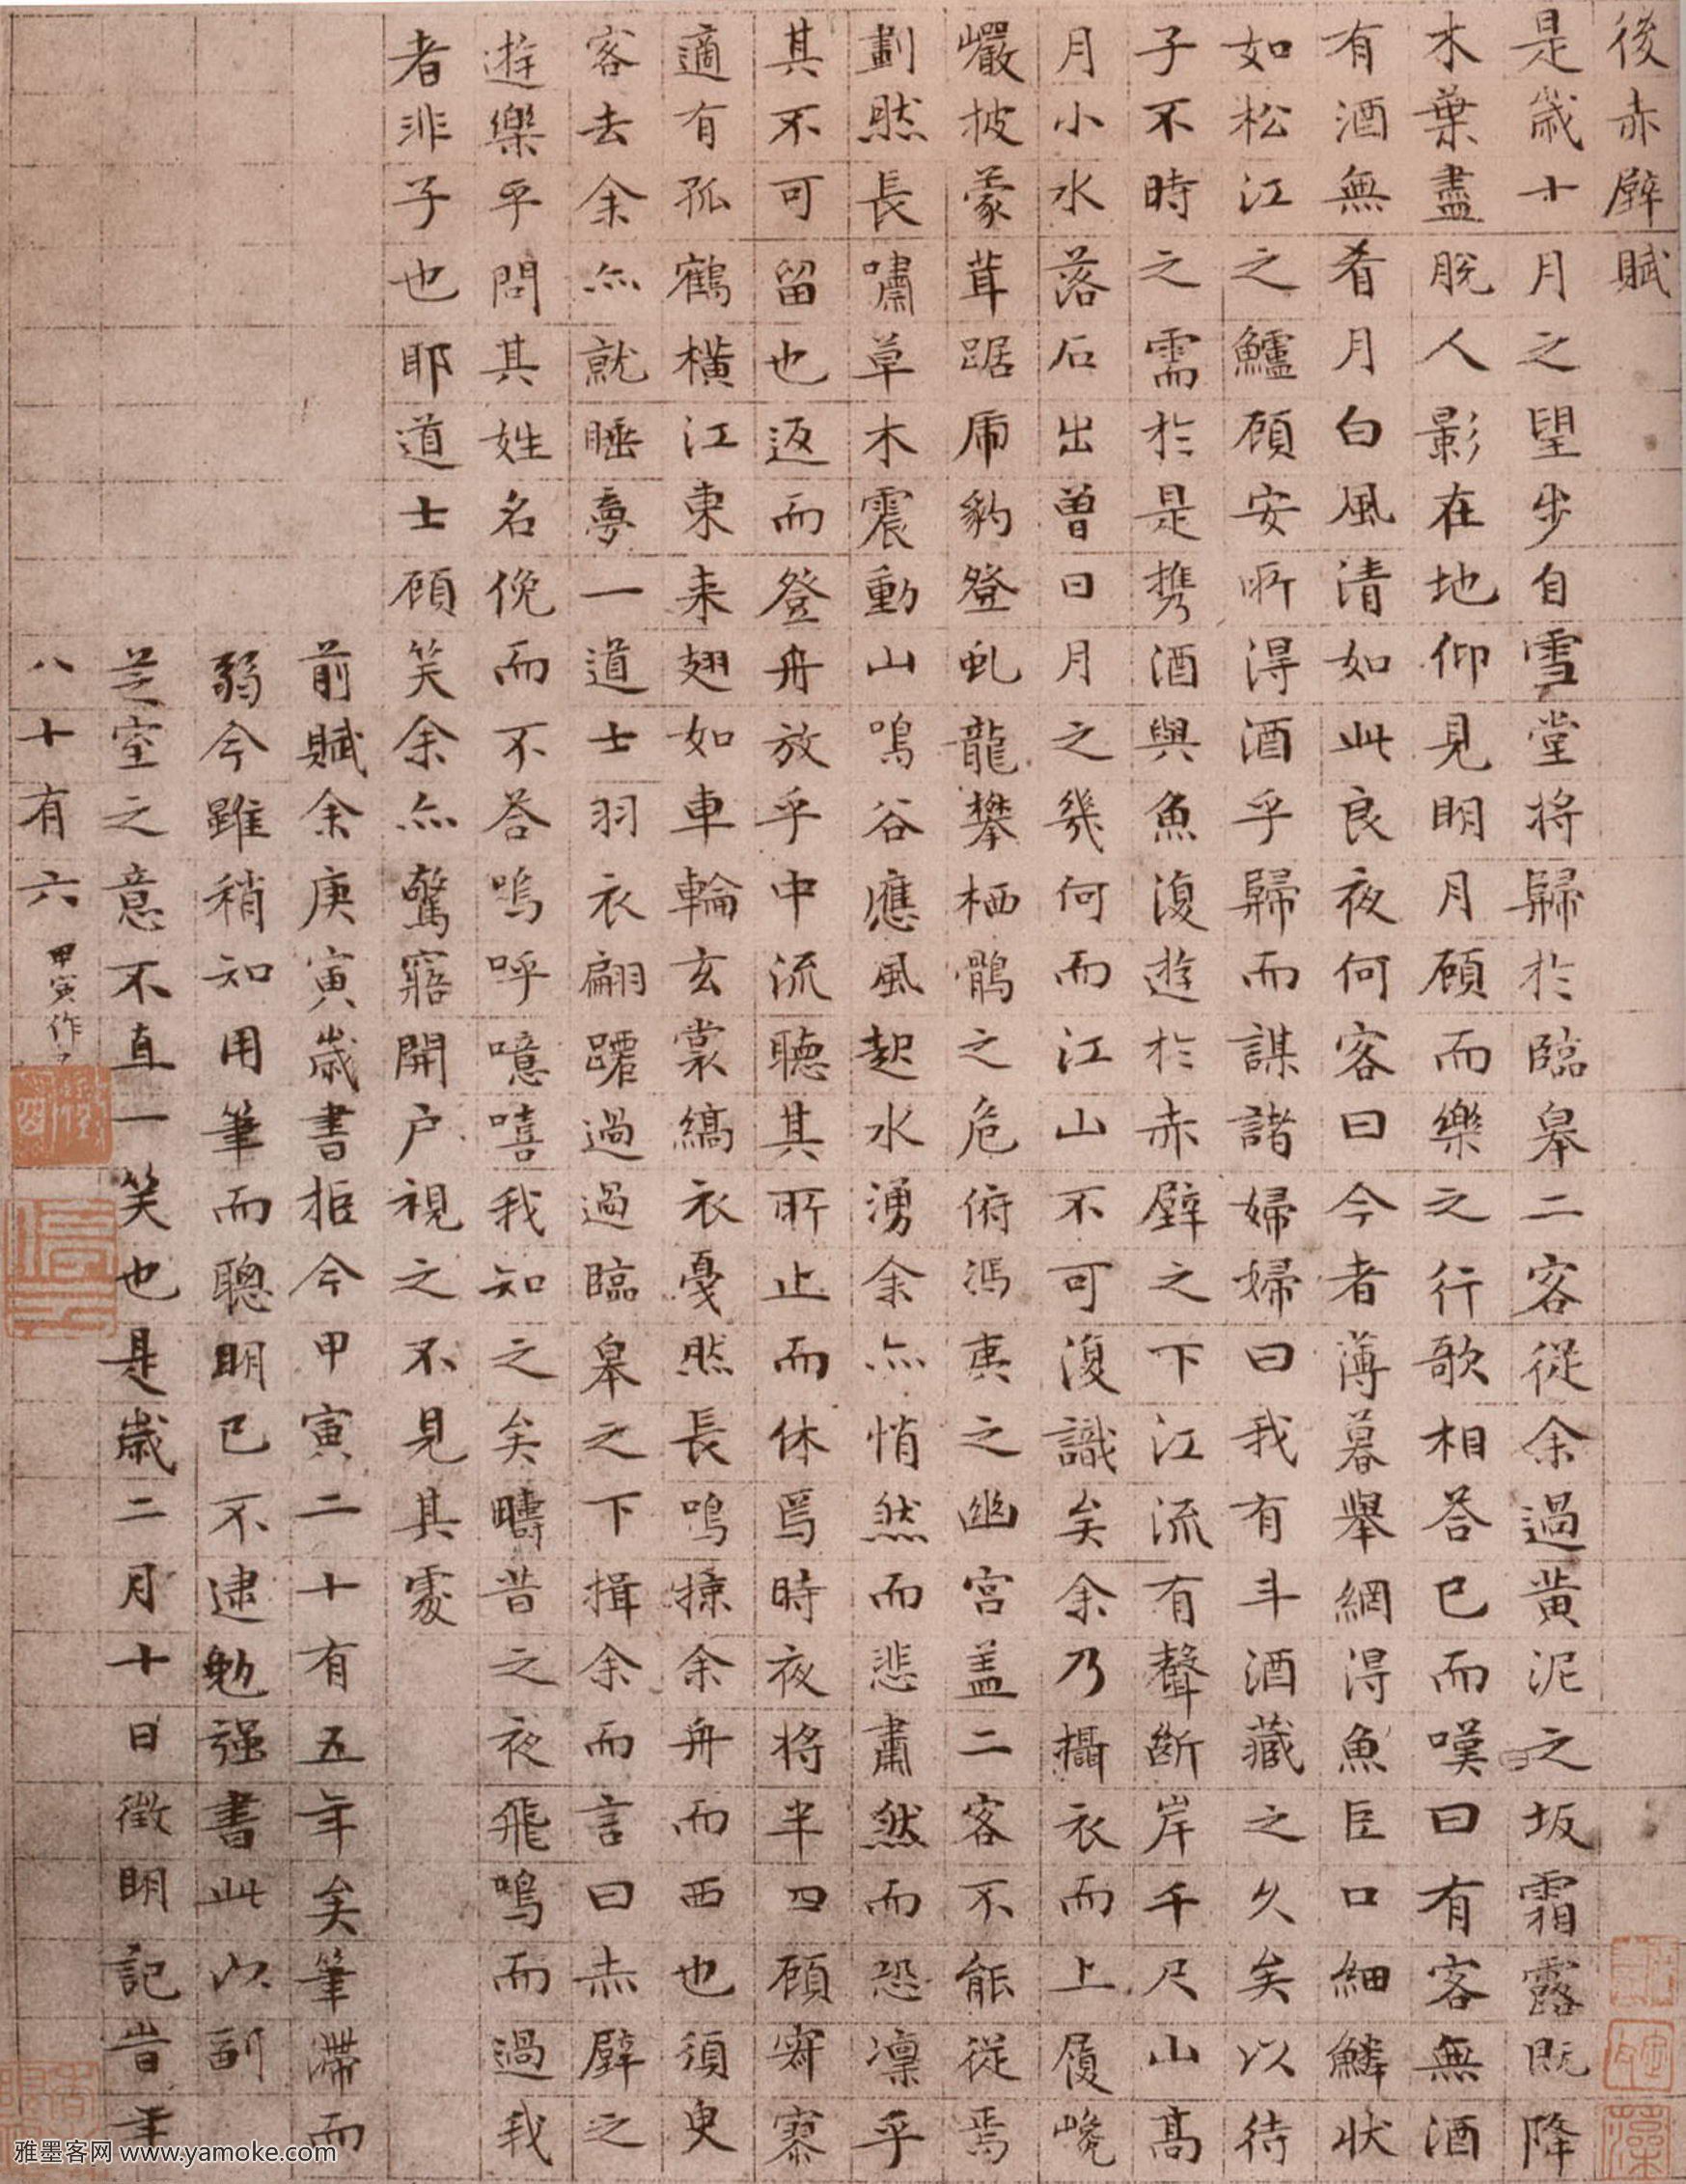 後赤壁賦
是歲十月之望步自雪堂將歸於臨皋二客從余過黃泥之坂霜露既降
木葉盡脫人影在地仰見明月顧而樂之行歌相答已而嘆曰有客無酒
有酒無肴月白風清如此良夜何客曰今者薄暮舉網得魚巨口細鱗狀
如松江之鱸顧安所得酒乎歸而謀諸婦婦曰我有斗酒藏之久矣以待
子不時之需於是携酒與魚復遊於赤壁之下江流有聲斷岸千尺山高
月小水落石出曾日月之幾何而江山不可復識矣余乃攝衣而上履巉
巖披蒙茸踞虎豹登虬龍攀栖鶻之危俯馮夷之幽宮盖二客不能從焉
劃然長嘯草木震動山鳴谷應風起水湧余亦悄然而悲肅然而恐凜乎
其不可留也返而登舟放乎中流聽其所止而休焉時夜將半四顧寂寥
適有孤鶴橫江東来翅如車輪玄裳縞衣戛然長鳴掠余舟而西也須臾
客去余亦就睡夢一道士羽衣翩躚過過臨皋之下揖余而言曰赤壁之
遊樂乎問其姓名俛而不荅嗚呼噫嘻我知之矣疇昔之夜飛鳴而過我
者非子也耶道士顧笑余亦驚寤開户視之不見其處
前賦余庚寅歲書拒今甲寅二十有五年矣筆滯而
弱今雖稍知用筆而聰明已不逮勉强書此以副
芝室之意不直一笑也是歲二月十日徵明記旹年
八十有六
甲寅作
雅墨客网 www.yamoke.com